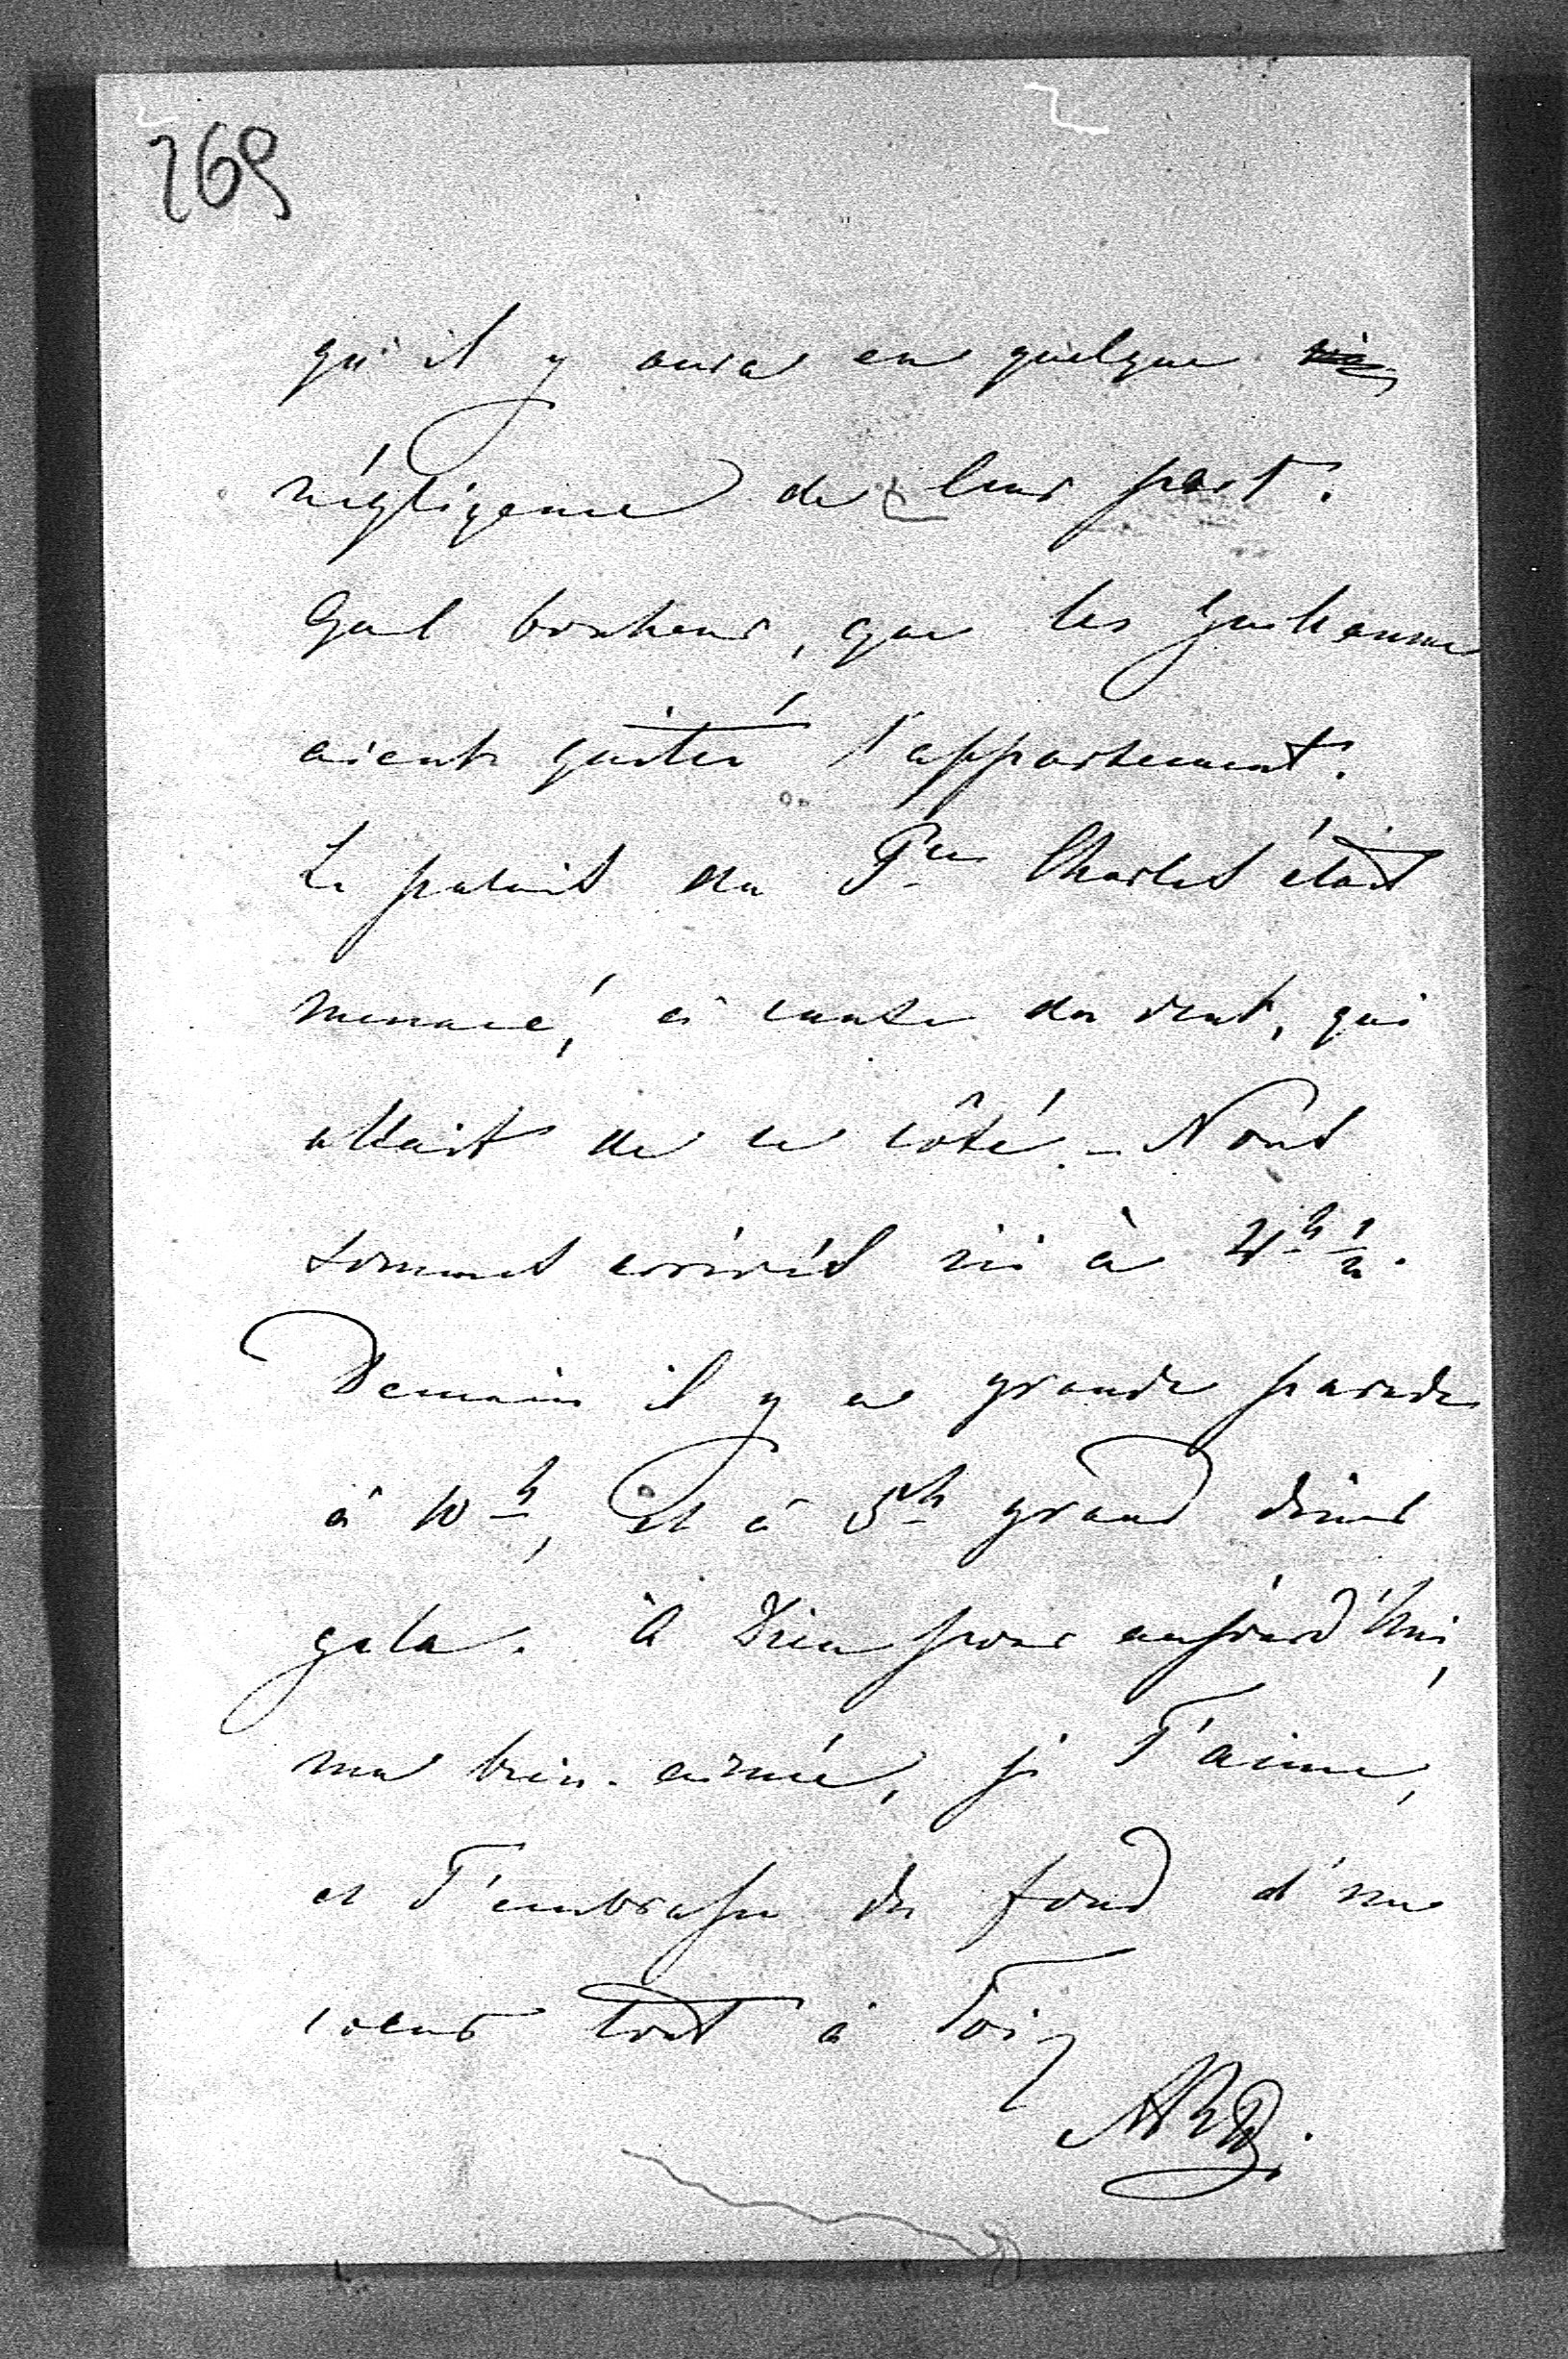 269
qu'il y aura eu quelque
négligence de leur part.
Quel bonheur, que les Guillaume
aient quitté l'appartement.
Le palais du Pce Charles était
menacé, à cause du vent, qui
allait de ce côté. – Nous
sommes arrivés ici à 4h 1/2.
Demain il y a grande parade
à 10h, et à 5h grand diner
gala. À Dieu pour aujourd'hui,
ma bien-aimée, je T'aime,
et T'embrasse du fond d'un
coeur tout à Toi,